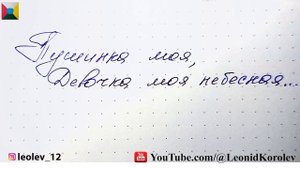 Пушинка моя,
Девочка моя небесная...
leolev_12
YouTube.com/@LeonidKorolev